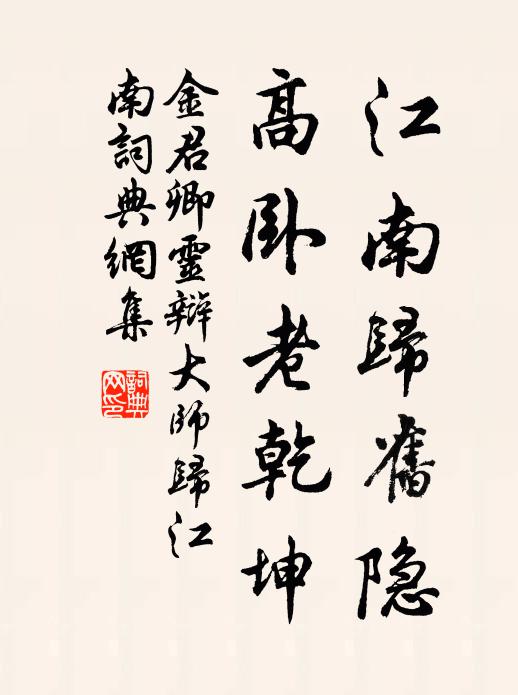 江南歸舊隐
高卧老乾坤
金君卿靈辯大师歸江
南詞典網集
詞典
网印